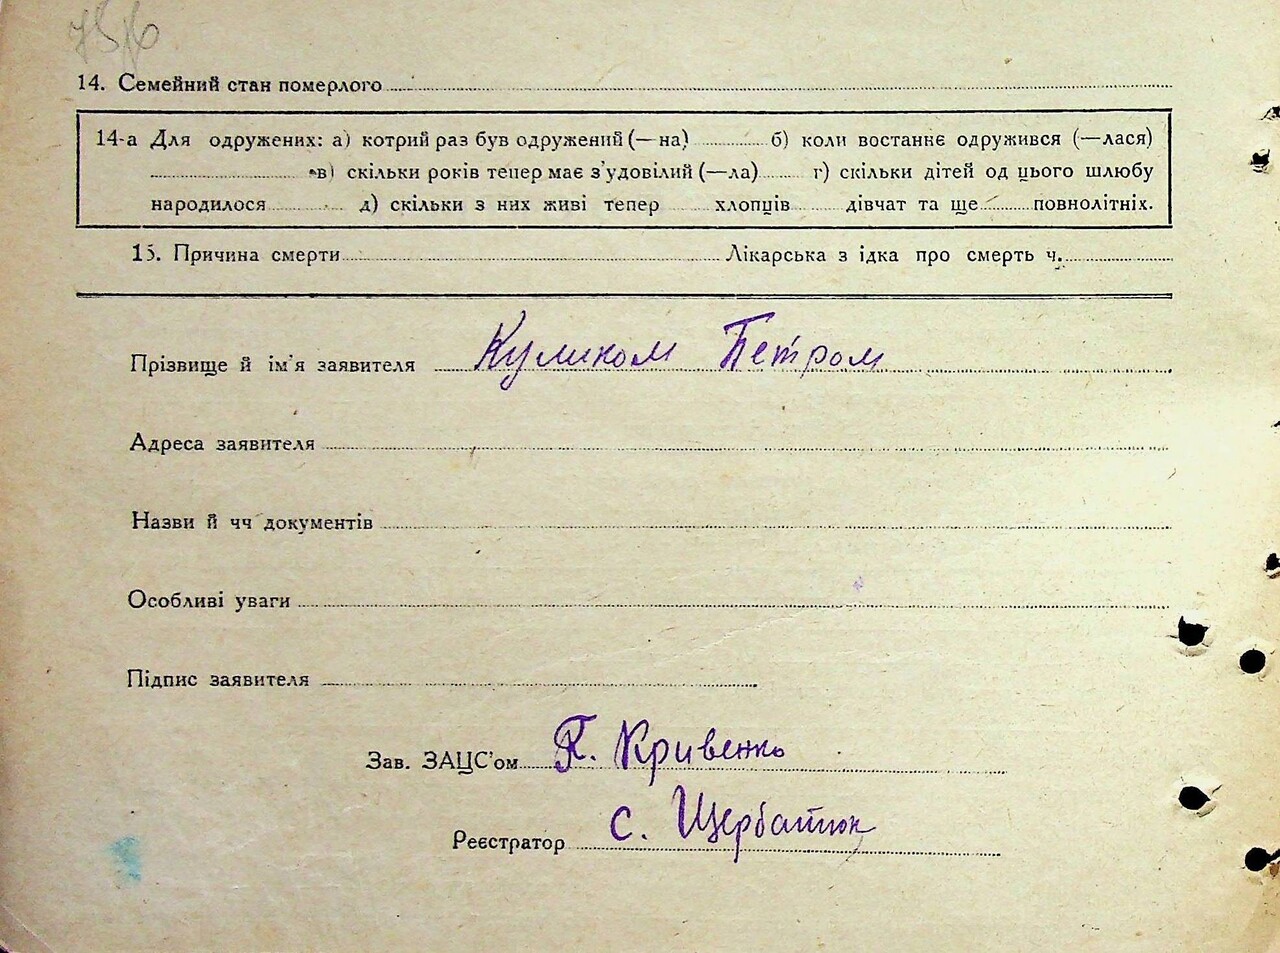 14. Семейний стан померлого
14-а Для одружених: а) котрий раз був одружений (—на) б) коли востаннє одружився (—лася)
в) скільки років тепер має з'удовілий (—ла) г) скільки дітей од цього шлюбу
народилося д) скільки з них живі тепер хлопців дівчат та ще повнолітніх.
15. Причина смерти Лікарська з ідка про смерть ч.
Прізвище й ім'я заявителя Куликом Петром
Адреса заявителя
Назви й чч документів
Особливі уваги
Підпис заявителя
Зав. ЗАЦС'ом П. Кривенко
Реєстратор С. Щербатюк